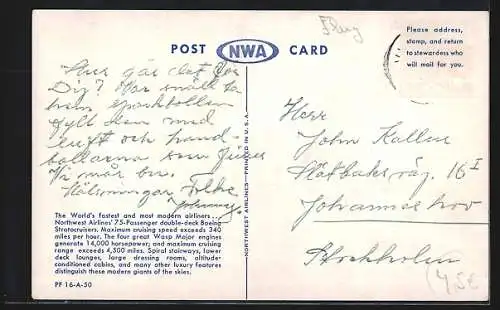 Flug
POST NWA CARD
Please address,
stamp, and return
to stewardess who
will mail for you.
Hur går det för
Dig? Var snäll ta
hem sparkbollen
fyll den med
luft och hand-
bollarna
Vi mår bra.
Hälsningar Folke
Herr
John Kallin
Slåtbaksväg. 16 I
Johanneshov
Stockholm
NORTHWEST AIRLINES—PRINTED IN U.S.A.
The World's fastest and most modern airliners...
Northwest Airlines' 75-Passenger double-deck Boeing
Stratocruisers. Maximum cruising speed exceeds 340
miles per hour. The four great Wasp Major engines
generate 14,000 horsepower; and maximum cruising
range exceeds 4,500 miles. Spiral stairways, lower
deck lounges, large dressing rooms, altitude-
conditioned cabins, and many other luxury features
distinguish these modern giants of the skies.
PF 16-A-50